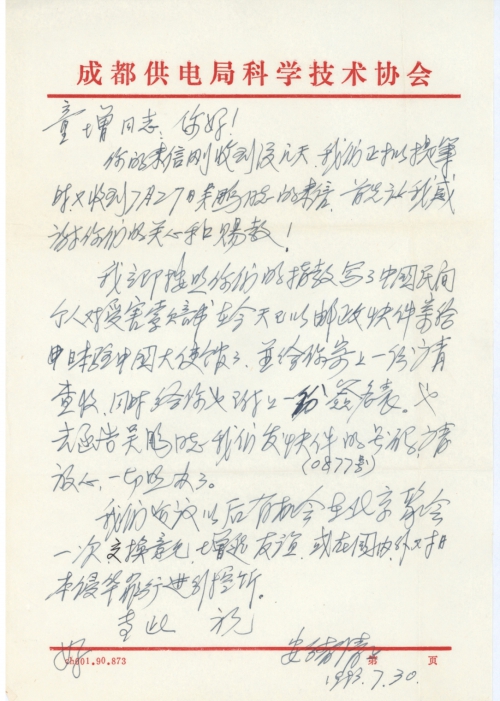 成都供电局科学技术协会
童增同志，你好！
你的来信刚收到没几天，我们正拟提笔
时，又收到7月27日来鹏同志的来信，首先让我感
谢你们的关心和赐教！
我立即按照你们的指教写了中国民间
个人对受害索赔书在今天已以邮政快件寄给
日本驻中国大使馆了，并给你寄上一份请
查收，同时给你也附上一份签名表。也
去函告吴鹏同志我们发快件的号码，请
(0877号)
放心，一切照办了。
我们建议以后有机会在北京聚会
一次交换意见，增进友谊，或在国内外对日
本侵华罪行进行控诉。
专此 祝
好
第 页
1993.7.30.
ch001.90.873